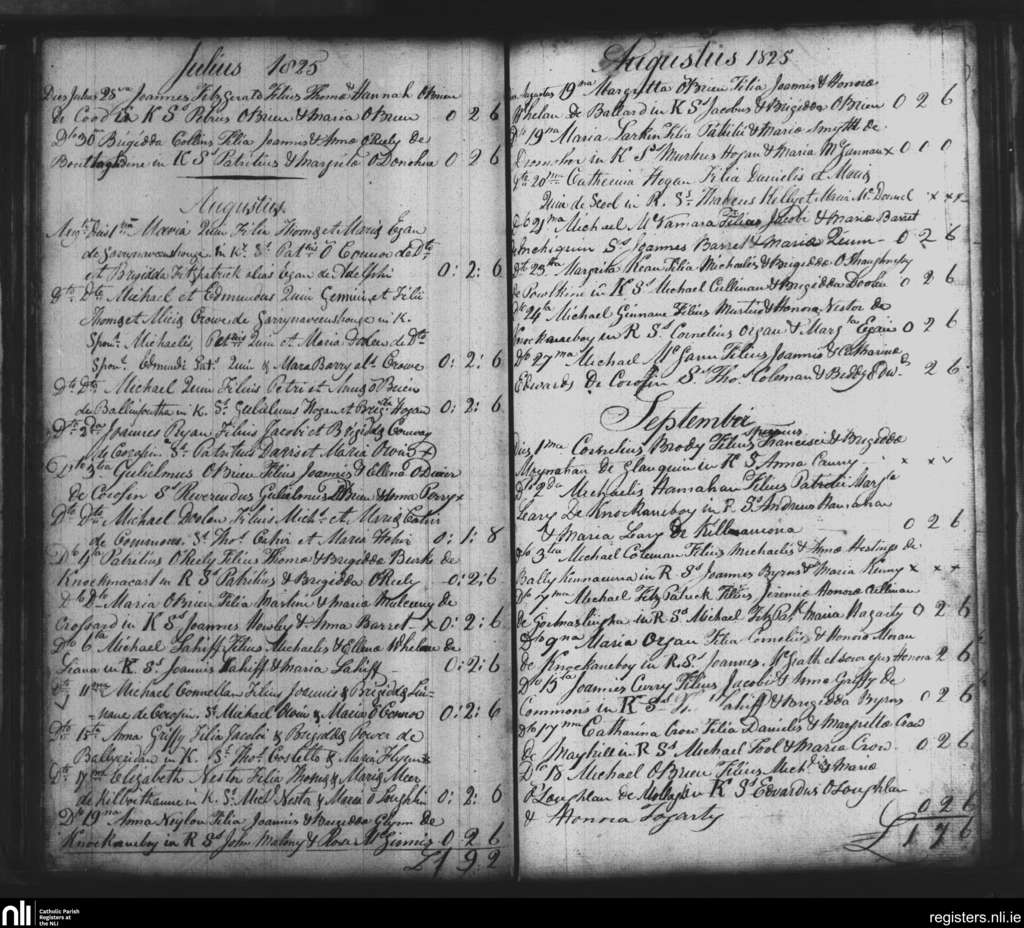 Julius 1825
Dies Julius 25 Joannes Fitzgerald Filius Thomæ & Hannah OBrien
de Cood in K Ss Petrus OBrien & Maria OBrien 0 2 6
Dto 30 Brigidda Collins Filia Joannis & Anna OReely de
in K Ss Patritius & Margrita ODonohoa 0 2 6
Augustus
Dies 1ma Maria Quin Filia Thomæ et Maria Egan
de Garrynaveenshouge in K. Ss. Patrius O Connor de Dto
et Brigidda Fitzpatrick alias Egan de 0:2:6
Dto Dto Michael et Edmundus Quin Gemini et Filii
Thomæ et Maria Crowe de Garrynaveenshouge in K.
Spon. Michaelis, Patrius Quin et Maria Doolen de Dto
Spon. Edmundi Pat. Quin & Mara Barry als. Crowe 0:2:6
Dto Dto Michael Quin Filius Petri et OBrien
de in K. Ss. Gulielmus Hogan et Brigda Hogan 0:2:6
Dto 2 Joannes Ryan Filius Jacobi et Brigidda
de Corofin Ss. Patritius Davis et Maria
Dto 3tia Gulielmus OBrien Filius Joannis & Ellena
de Corofin Ss Reverendus Gulielmus OBrien & Anna Perry x
Dto Dto Michael Doolen Filius Michl. et Maria
de Commons. Ss. Thos. et Maria 0:1:8
Dto 4ta Patritius OReely Filius Thomæ & Brigidda Burke de
Knockmacart in R Ss Patritius & Brigidda OReely 0:2:6
Dto Dto Maria OBrien Filia Martini & Maria Mulceny de
Crossard in K Ss Joannes Howley & Anna Barret x 0:2:6
Dto 6ta Michael Lahiff Filius Michaelis & Ellena Whelan de
Liana in K Ss Joannis Lahiff & Maria Lahiff 0:2:6
Dto 11 Michael Connellan Filius Joannis & Brigida
de Corofin. Ss. Michael & Maria OConnor 0:2:6
Dto 15ta Anna Griffy Filia Jacobi & Brigidda Power de
in K. Ss. Thos. Costello & Maria
Dto 17 Elizabeth Nestor Filia Thomæ & Maria
de in K. Ss. Michl. Nestor & Maria OLoughlin 0:2:6
Dto 19na Anna Neylon Filia Joannis & Brigidda Glynn de
Knockaneboy in R Ss John Malony & Rosa McGinnis 0 2 6
£1 9 2
Augustus 1825
Augustus 19na Margritta OBrien Filia Joannis & Honora
Whelan de Ballard in K Ss Jacobus & Brigidda OBrien 0 2 6
Dto 19na Maria Larkin Filia Patritii & Maria Smyth de
in K Ss Murtius Hogan & Maria x 0 0 0
Dto 20 Catherina Hogan Filia Danielis et
Quin de Scool in R. Ss. Thadeus Kellyet Maria x x x
Dto 21ma Michael McNamara Filius Jacobi & Maria Barret
Inchiquin Ss Joannes Barret & Maria Quin 0 2 6
Dto 23tia Margrita Kean Filia Michaelis & Brigidda OShaughnesy
de in K Ss Michael Cullinan & Brigidda Doolen 0 2 6
Dto 24ta Michael Guinane Filius Murtii & Honora Nestor de
Knockaneboy in R Ss Cornelius Organ & Margta Egan 0 2 6
Dto 27ma Michael McGann Filius Joannis & Catharina
Edwards De Corofin Ss Thos. Coleman & Biddy Edwds 2 6
September
Dies 1ma Cornelius Brody Filius spurius Francisci & Brigidda
Moynahan de Glanquin in K S Anna Canny x x
Dto 2da Michaelis Hanrahan Filius Patritii Margta
Leary De Knockaneboy in R Ss Andrew Hanrahan
& Maria Leary de Killenamona 0 2 6
Dto 3tia Michael Coleman Filius Michaelis & Anna Hestings de
Bally Kennacura in R Ss Joannes Byrns & Maria Kenny x x x
Dto 7ma Michael Fitz Patrick Filius Jeremia Honora Cullinan
de in R Ss Michael Fitz Patk Maria Hogarty 0 2 6
Dto 9na Maria Organ Filia Cornelii & Honora Moran
de Knockaneboy in R. Ss Joannes McGrath et soror ejus Honora 2 6
Dto 13tia Joannis Curry Filius Jacobi & Anna Griffy de
Commons in R Ss Lahiff & Brigidda Byrns 0 2 6
Dto 17ma Catharina Crow Filia Danielis & Margritta Crow
de Mayhill in R Ss Michael Fool & Maria Crow. 0 2 6
Dto 18 Michael OBrien Filius Michl & Maria
OLoughlan de in K Ss Edvardus OLoughlan
& Honora Fogarty 0 2 6
£1 7 6
nli Catholic Parish
Registers at
the NLI
registers.nli.ie